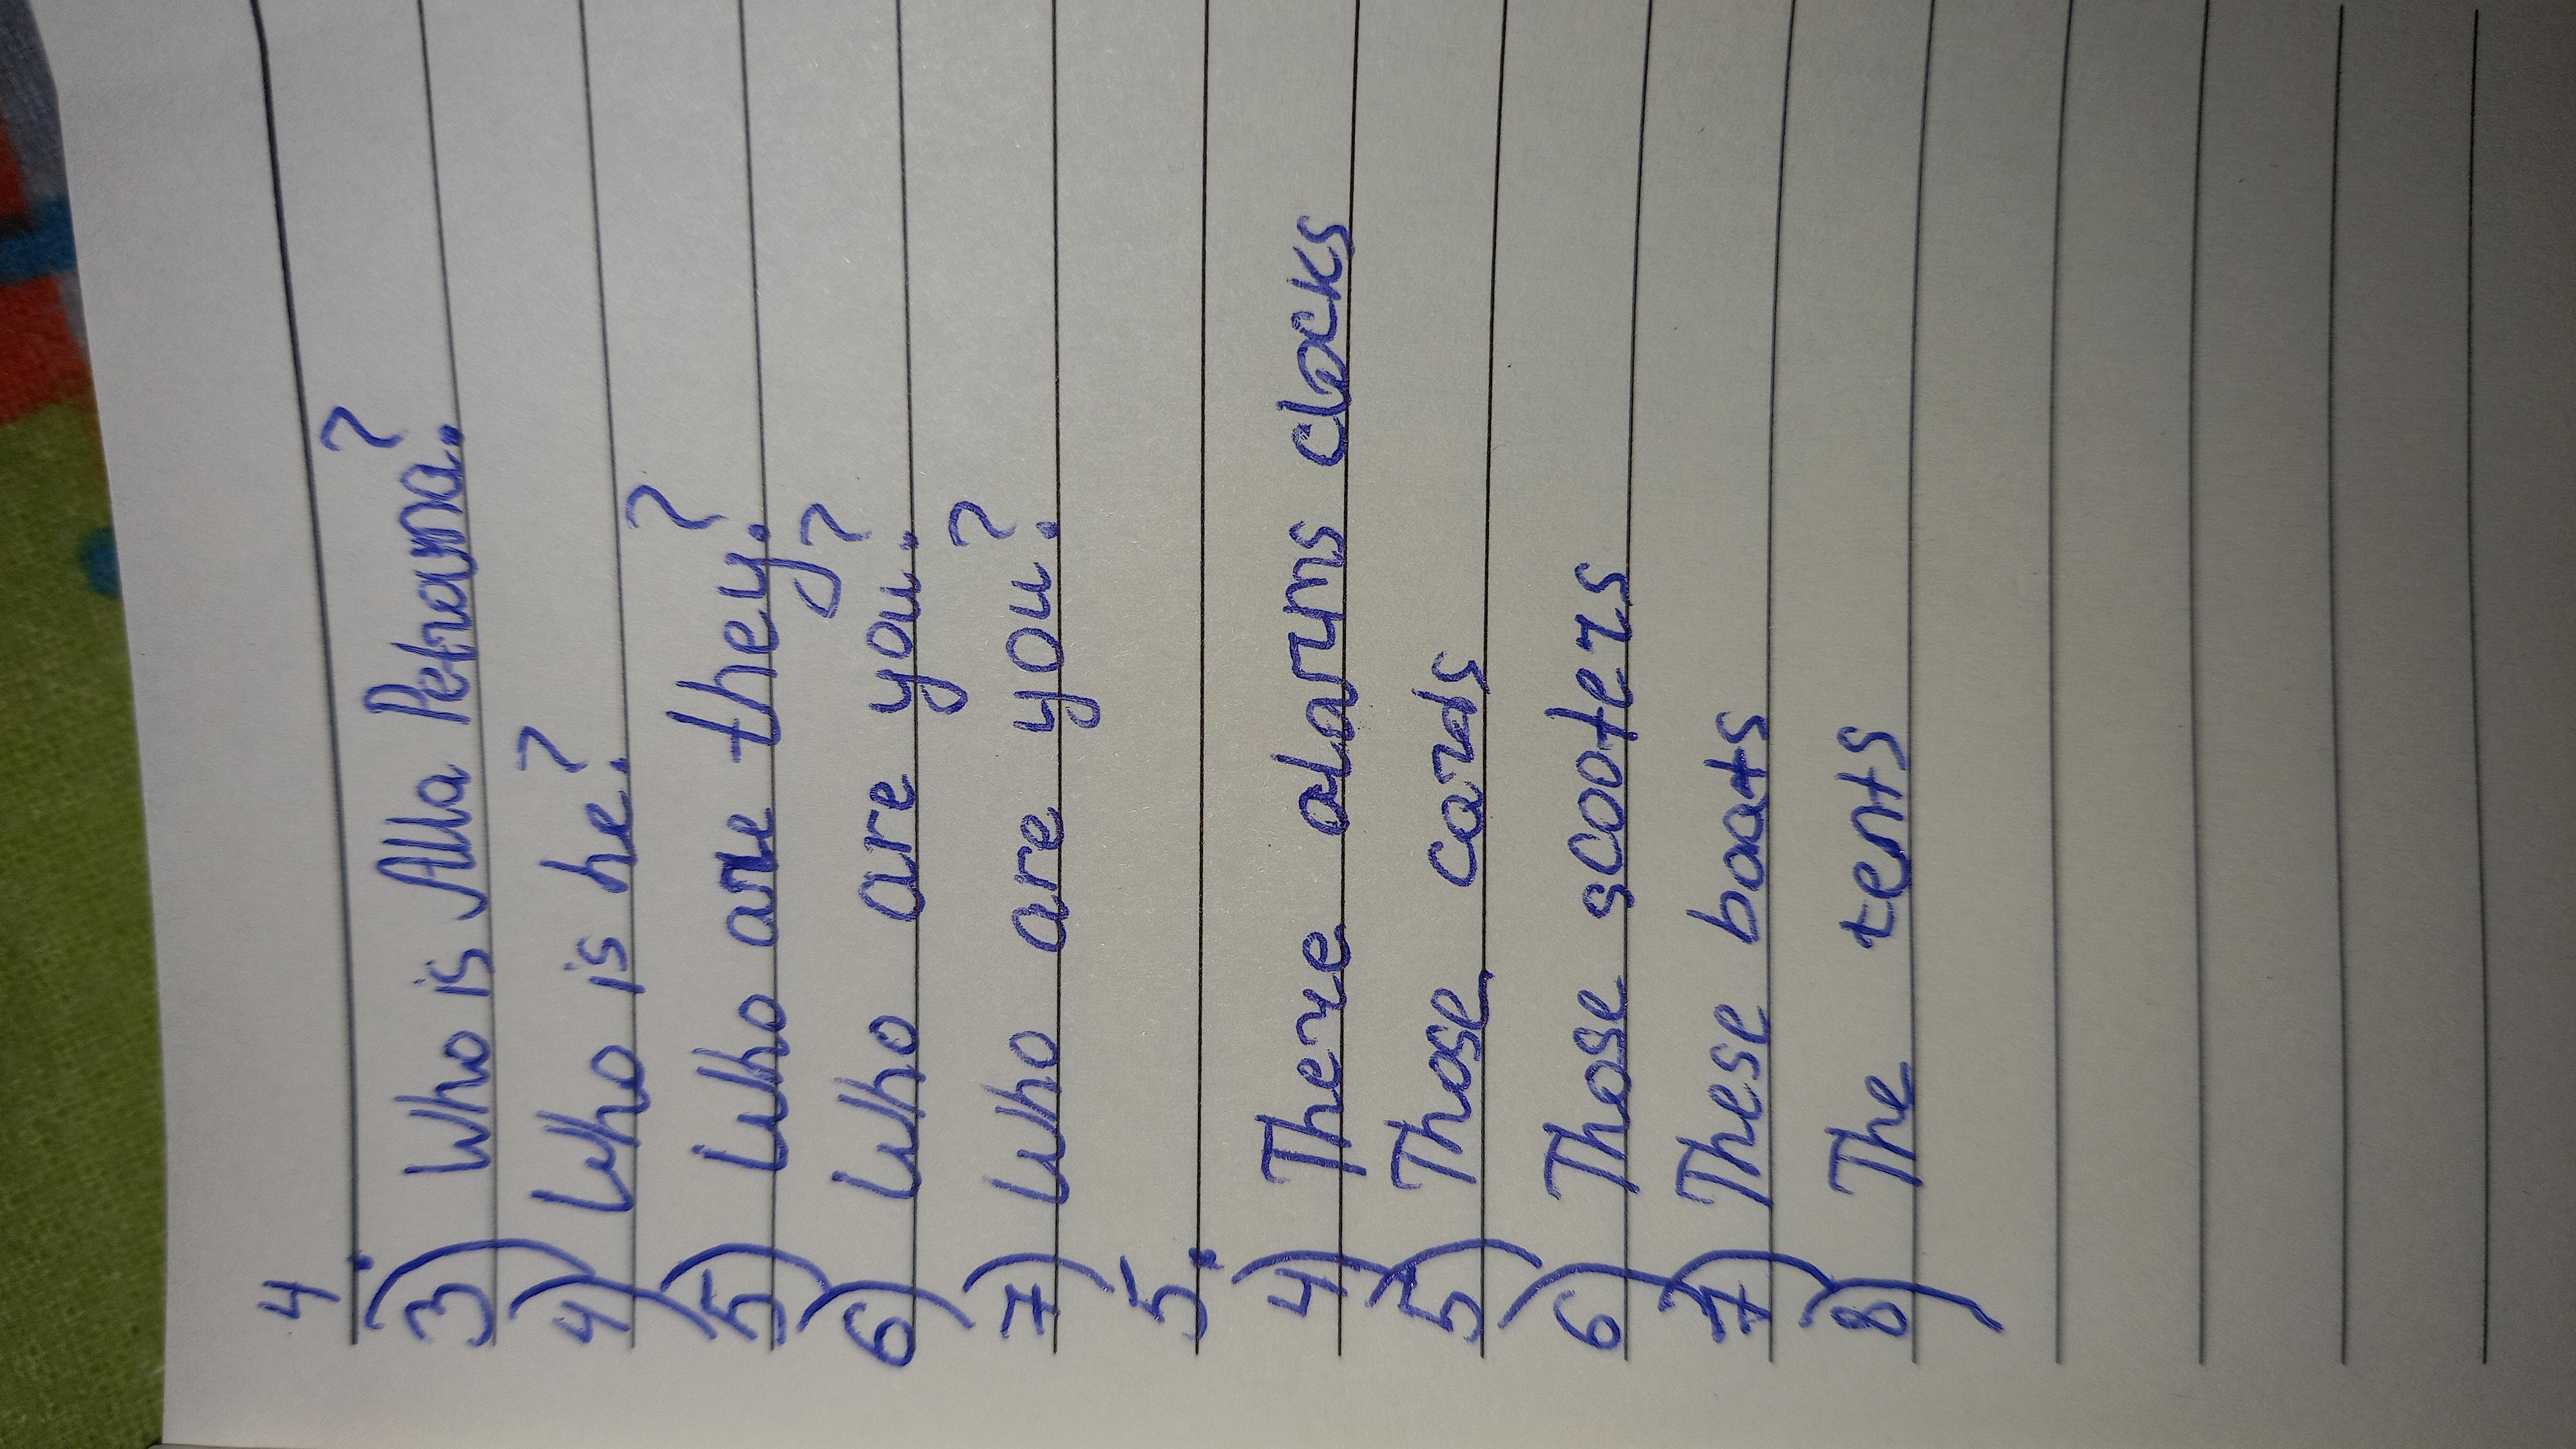 4.
3) Who is Alla Petrovna?
4) Who is he?
5) Who are they?
6) Who are you?
7) Who are you?
5.
4) There alarms clocks
5) Those cards
6) Those scooters
7) These boats
8) The tents